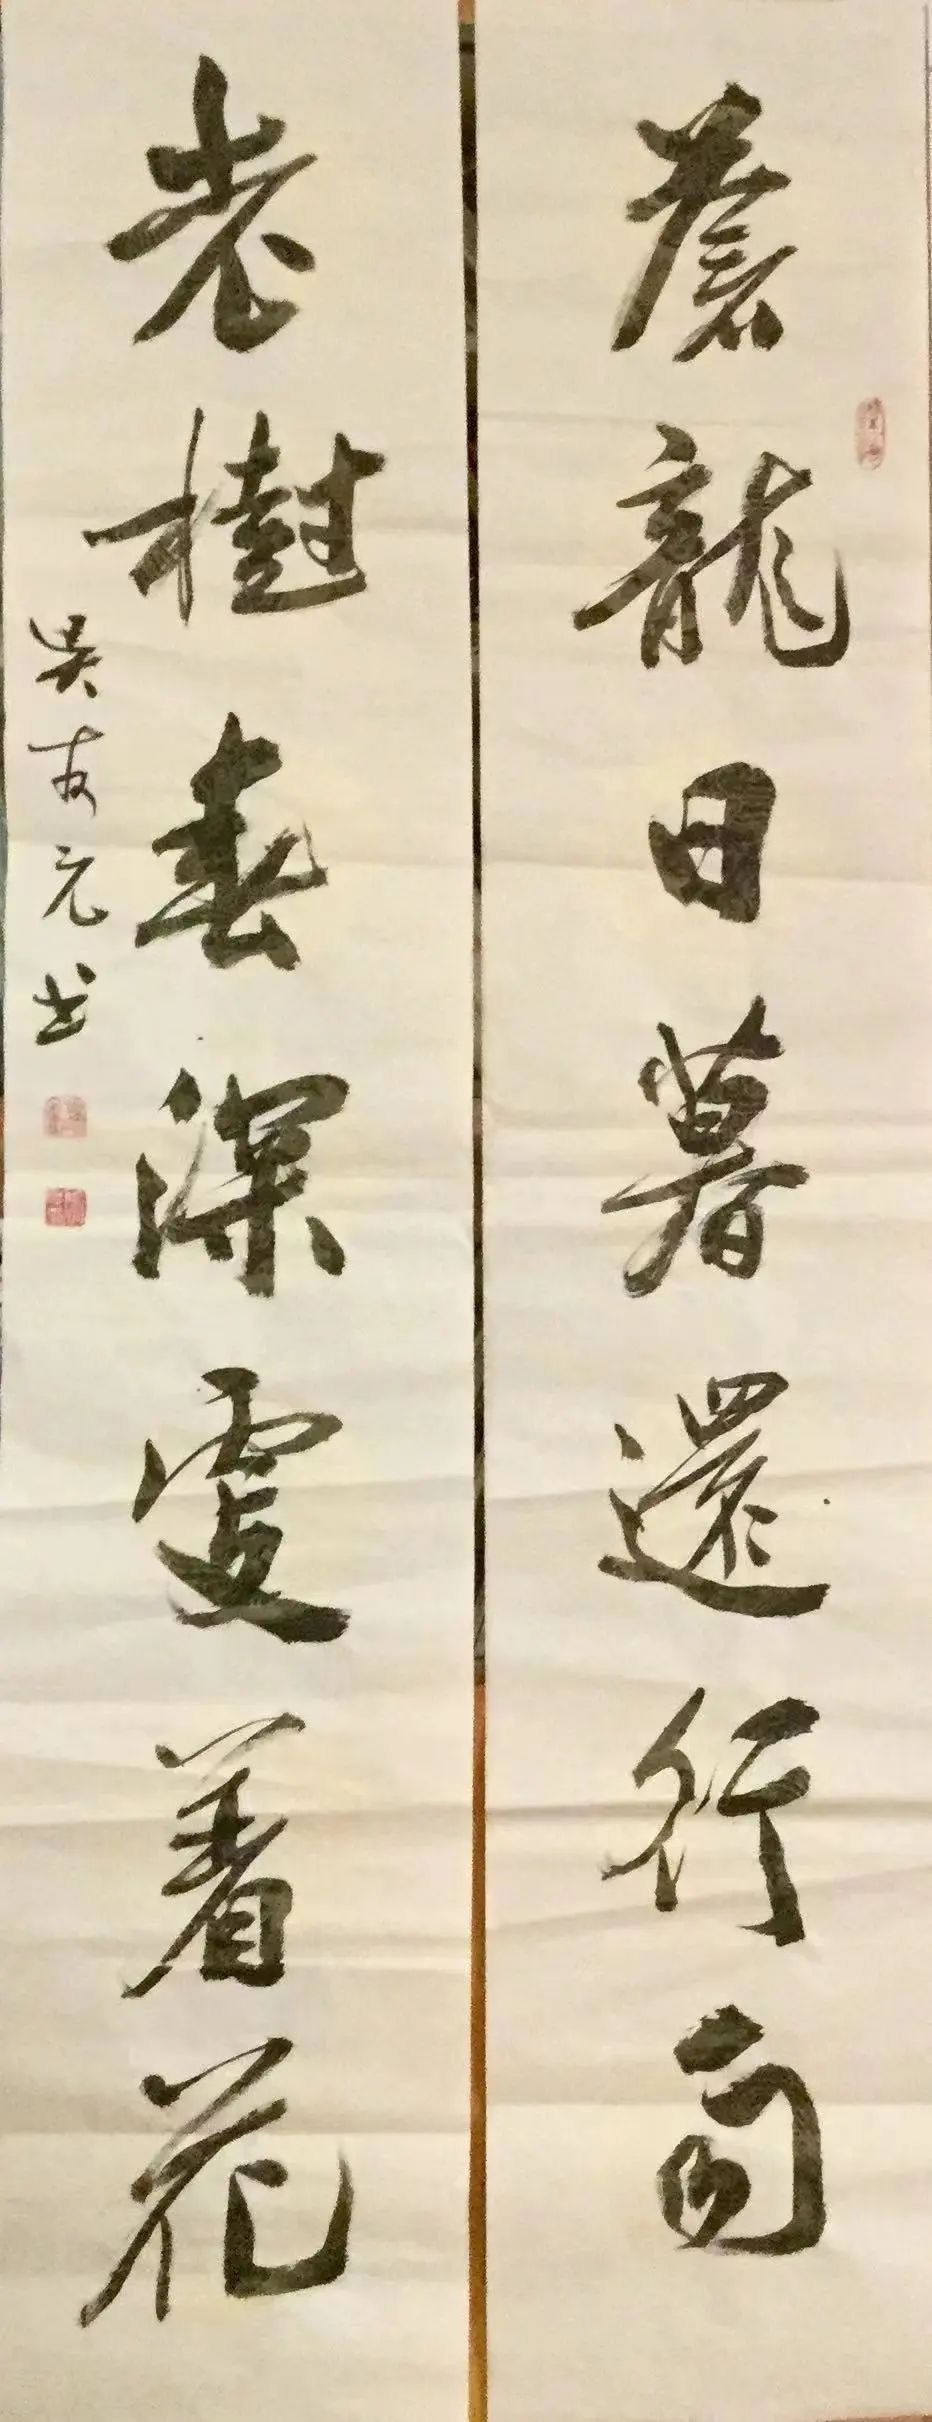 蒼龍日暮還行雨
老樹春深更著花
吴友元书